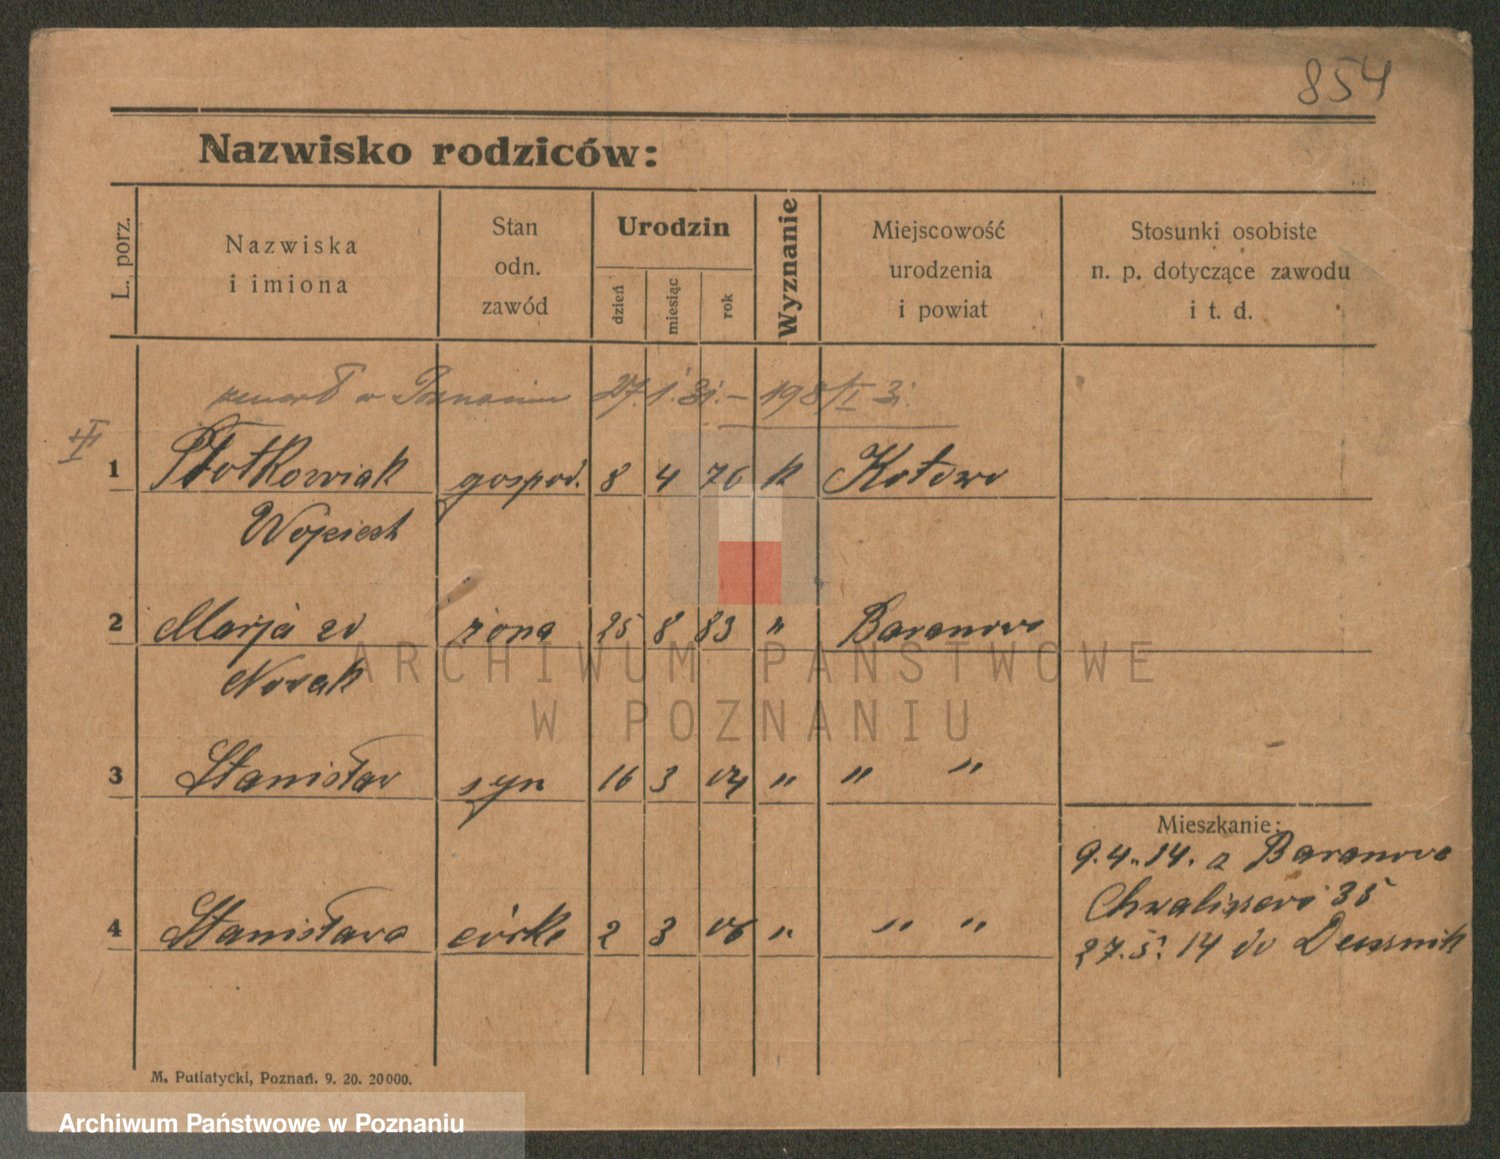 854
Nazwisko rodziców:
L. porz.
Nazwiska
i imiona
Stan
odn.
zawód
Urodzin
dzień
miesiąc
rok
Wyznanie
Miejscowość
urodzenia
i powiat
Stosunki osobiste
n. p. dotyczące zawodu
i t. d.
w Poznaniu 27. 1. 31. – 198/I 31
1 Płotkowiak gospod. 8 4 76 k Kotowo
Wojciech
2 Marja zd żona 25 8 83 " Baranowo
Nowak
ARCHIWUM PAŃSTWOWE
W POZNANIU
3 Stanisław syn 16 3 04 " " "
Mieszkanie:
9.4.14. z Baranowo
35
4 Stanisława córka 2 3 06 " " "
27.5. 14 do Dusznik
M. Putiatycki, Poznań. 9. 20. 20000.
Archiwum Państwowe w Poznaniu